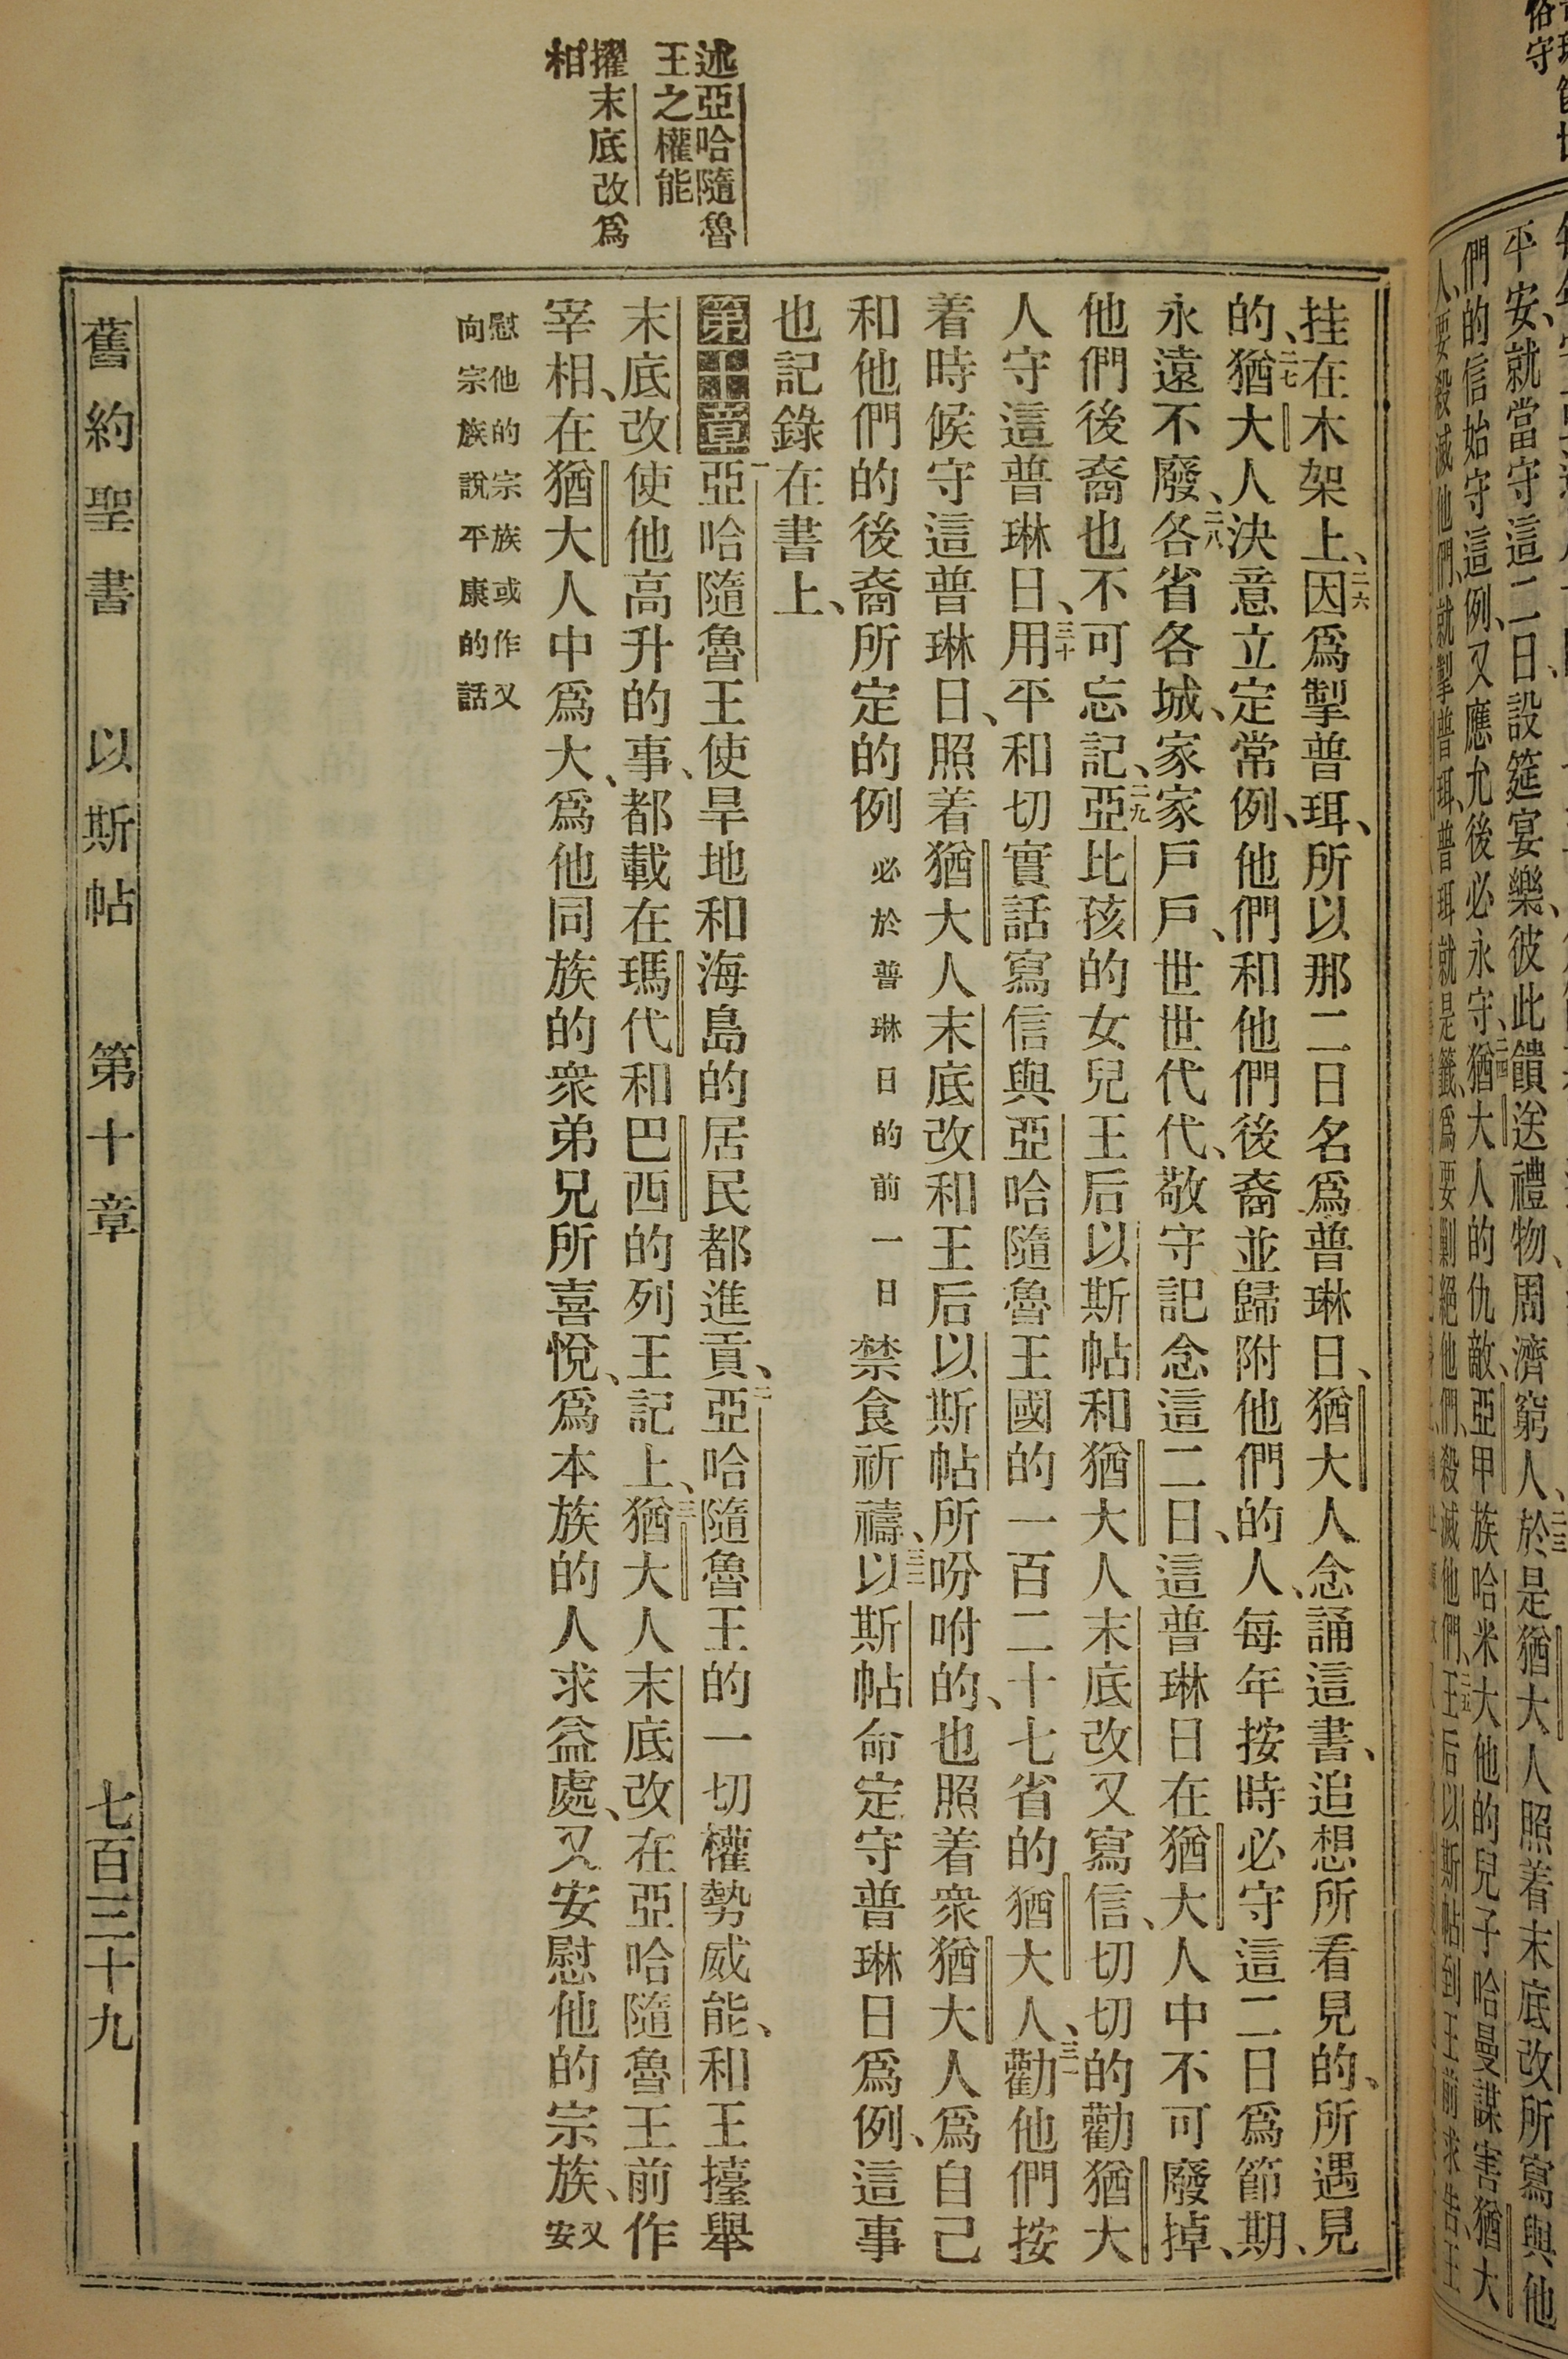 述亞哈隨魯
王之權能
擢末底改爲
相
挂在木架上、二六因爲掣普珥、所以那二日名爲普琳日、猶大人念誦這書、追想所看見的、所遇見
的、二七猶大人決意立定常例、他們和他們後裔並歸附他們的人、每年按時必守這二日爲節期、
永遠不廢、二八各省各城、家家戶戶、世世代代、敬守記念這二日、這普琳日在猶大人中不可廢掉、
他們後裔也不可忘記、二九亞比孩的女兒王后以斯帖和猶大人末底改又寫信、切切的勸猶大
人守這普琳日、三十用平和切實話寫信與亞哈隨魯王國的一百二十七省的猶大人、三一勸他們按
着時候守這普琳日、照着猶大人末底改和王后以斯帖所吩咐的、也照着衆猶大人爲自己
和他們的後裔所定的例必於普琳日的前一日禁食祈禱、三二以斯帖命定守普琳日爲例、這事
也記錄在書上、
第十章一亞哈隨魯王使旱地和海島的居民都進貢、二亞哈隨魯王的一切權勢威能、和王擡舉
末底改使他高升的事、都載在瑪代和巴西的列王記上、三猶大人末底改在亞哈隨魯王前作
宰相、在猶大人中爲大、爲他同族的衆弟兄所喜悅、爲本族的人求益處、又安慰他的宗族、又安
慰他的宗族或作又
向宗族說平康的話
舊約聖書 以斯帖 第十章 七百三十九
平安、就當守這二日設筵宴樂、彼此饋送禮物、周濟窮人、二三於是猶大人照着末底改所寫與他
們的信始守這例、又應允後必永守、二四猶大人的仇敵、亞甲族哈米大他的兒子哈曼謀害猶大
人、要殺滅他們、就掣普珥、普珥就是籤、爲要剿絕他們、殺滅他們、二五王后以斯帖到王前求告、王